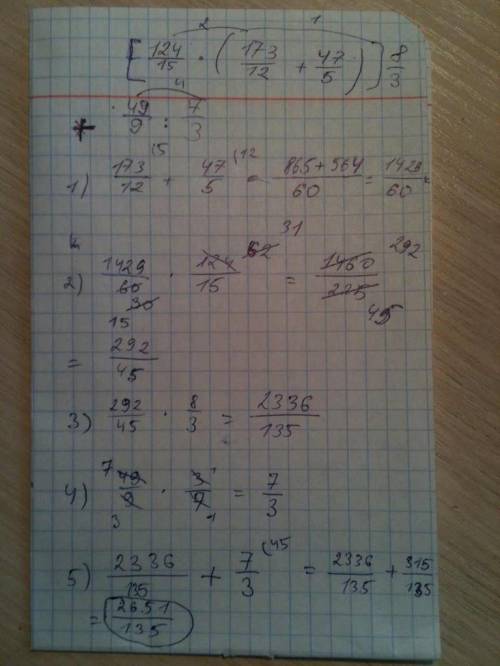 2 1
[124/15 · (173/12 + 47/5)] 8/3
4
* 49/9 : 7/3
1) 173/12 (5 + 47/5 (12 = 865+564/60 = 1429/60
2) 1429/60 30 15 · 124/15 62 31 = 1460/225 292 45
= 292/45
3) 292/45 · 8/3 = 2336/135
4) 7 49/9 3 · 3/7 1 1 = 7/3
5) 2336/135 + 7/3 (45 = 2336/135 + 315/135
= 2651/135